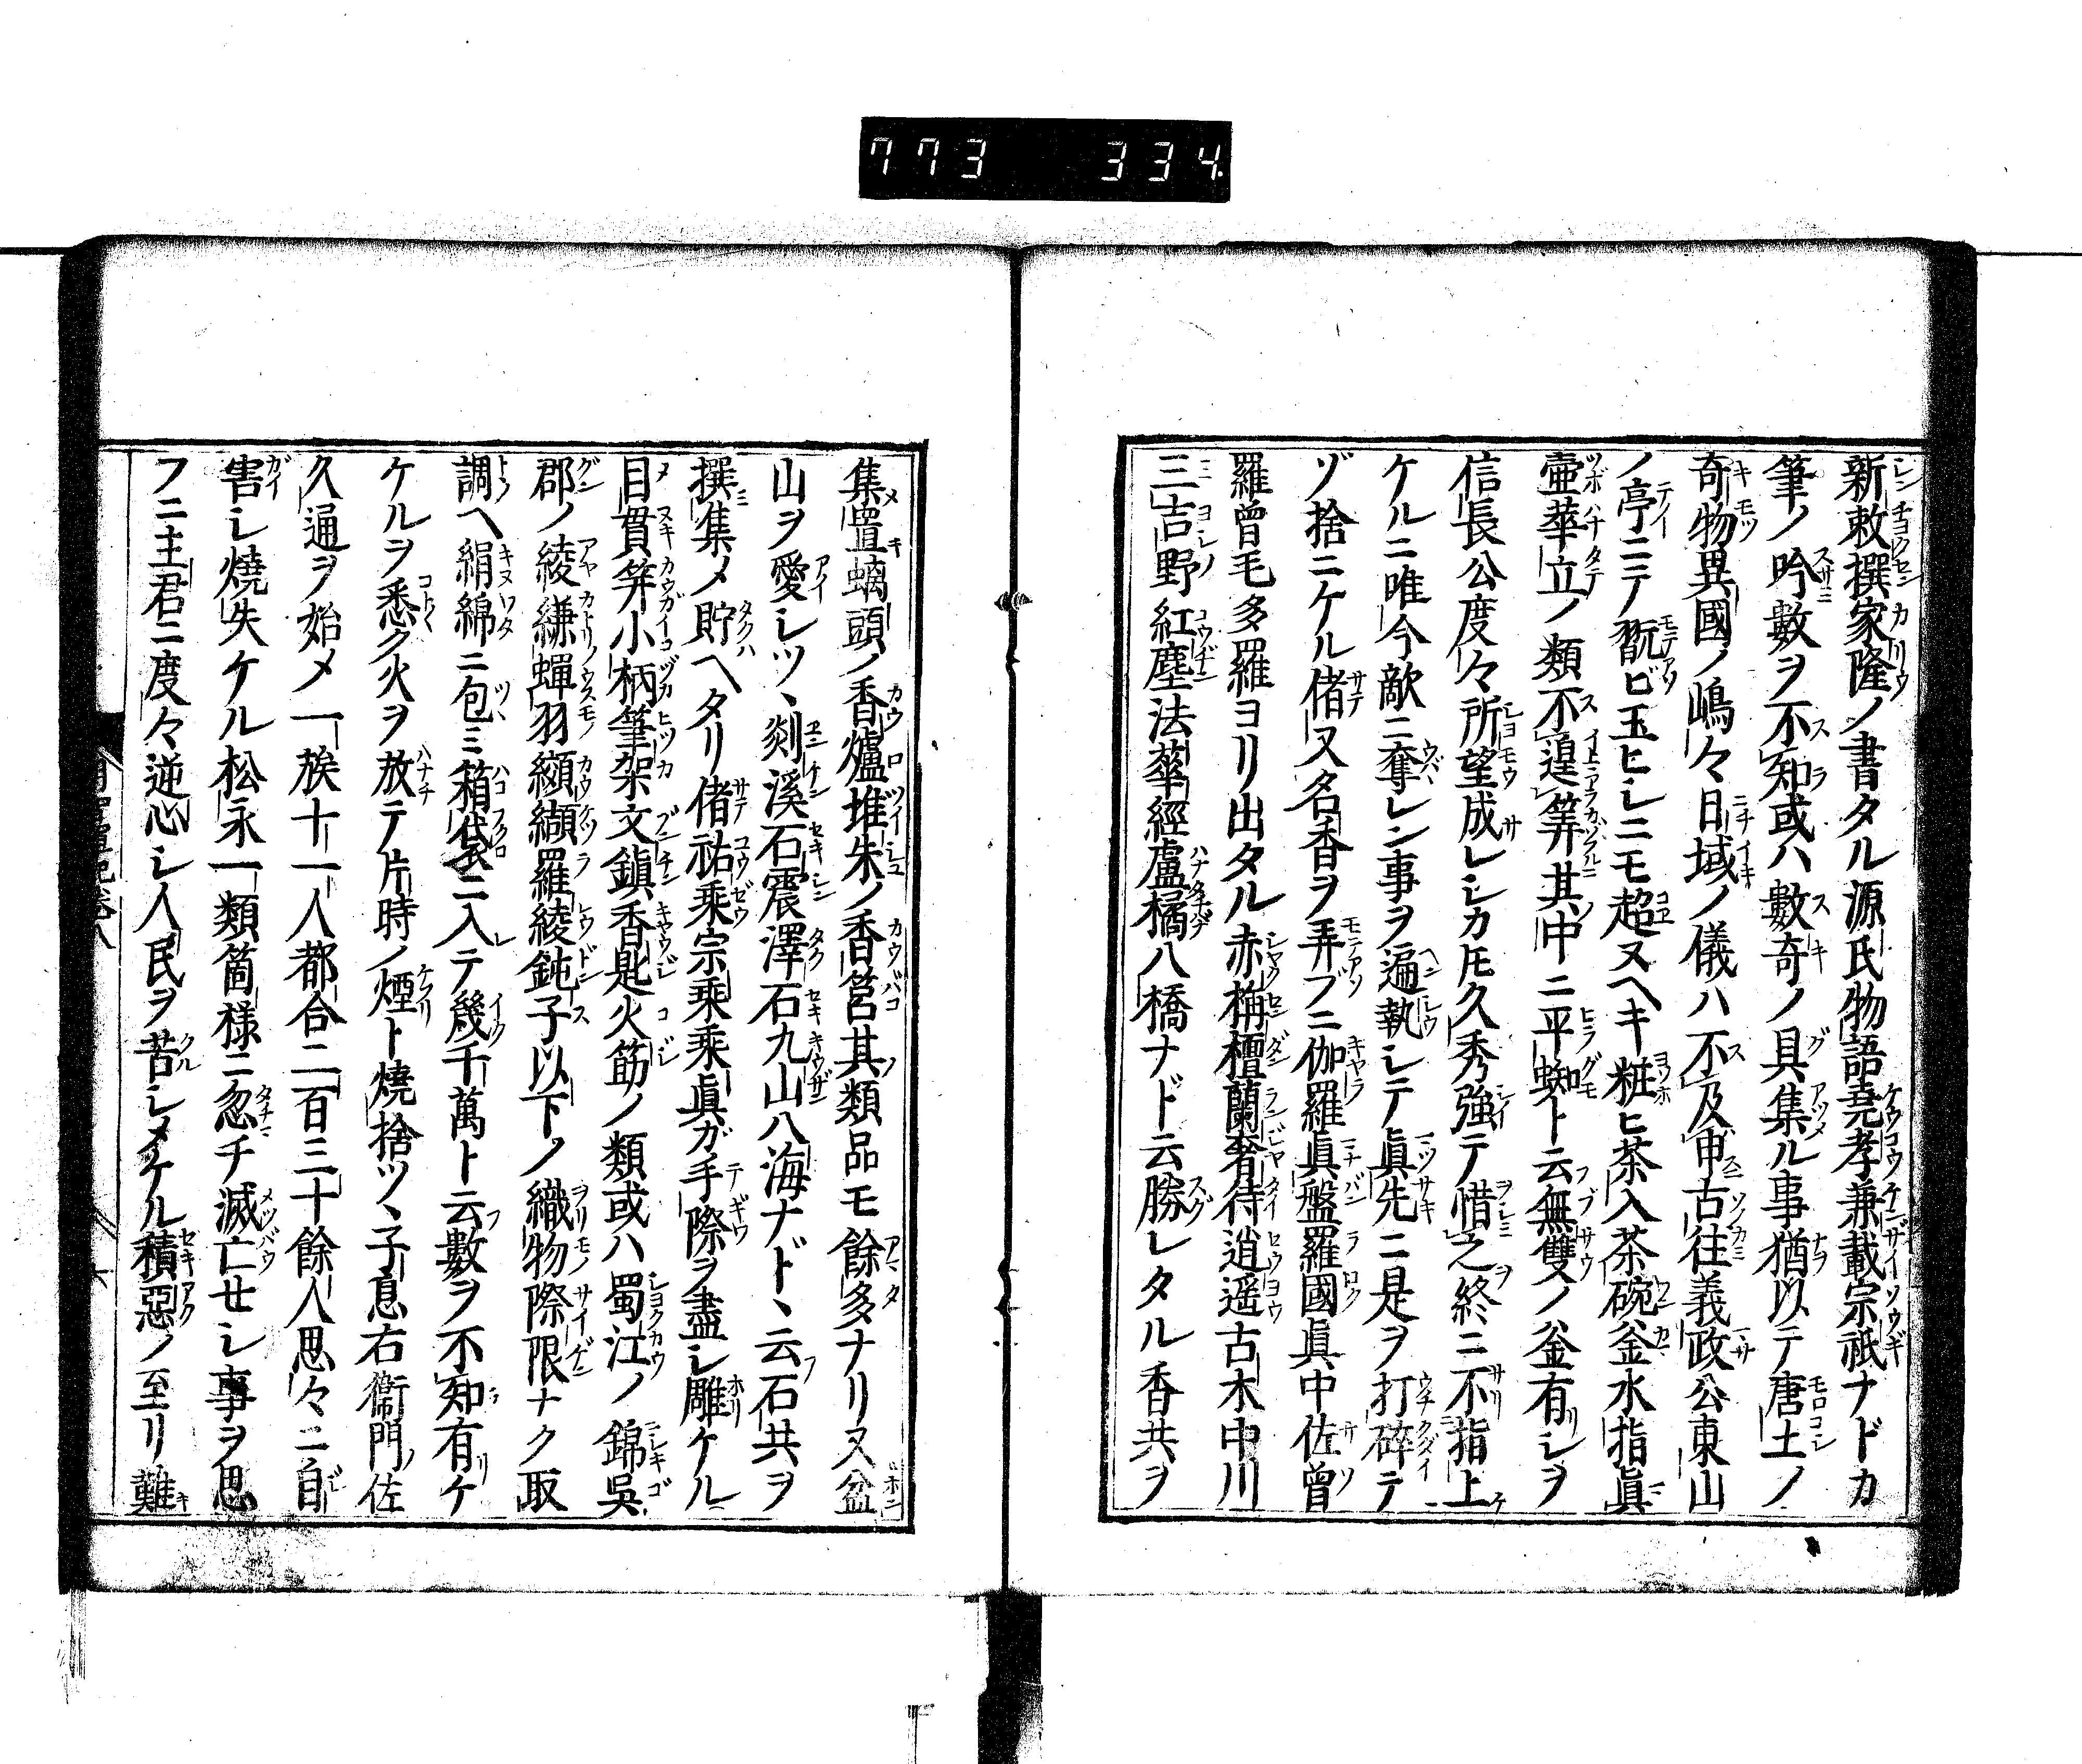 773 334
新敕撰家隆ノ書タル源氏物語堯孝兼載宗祇ナドカ
筆ノ吟數ヲ不知或ハ數奇ノ具集ル事猶以テ唐土ノ
奇物異國ノ嶋々日域ノ儀ハ不及申古往義政公東山
ノ亭ニテ翫ビ玉ヒシニモ超ヌヘキ粧ヒ茶入茶碗釜水指眞
壷華立ノ類不遑筭其中ニ平蜘ト云無雙ノ釜有シヲ
信長公度々所望成レシカ𪜈久秀強テ惜之終ニ不指上
ケルニ唯今敵ニ奪レン事ヲ遍執シテ眞先ニ是ヲ打碎テ
ゾ捨ニケル偖又名香ヲ弄ブニ伽羅眞盤羅國眞中佐曾
羅曾毛多羅ヨリ出タル赤栴檀蘭奢待逍遥古木中川
三吉野紅塵法華經盧橘八橋ナド云勝レタル香共ヲ
集置螭頭ノ香爐堆朱ノ香筥其類品モ餘多ナリ又盆
山ヲ愛シツヽ剡溪石震澤石九山八海ナドヽ云石共ヲ
撰集メ貯ヘタリ偖祐乘宗乘乘眞ガ手際ヲ盡シ雕ケル
目貫筓小柄筆架文鎭香匙火筯ノ類或ハ蜀江ノ錦吳
郡ノ綾縑蟬羽纐纈羅綾鈍子以下ノ織物際限ナク取
調ヘ絹綿ニ包ミ箱袋ニ入テ幾千萬ト云數ヲ不知有ケ
ケルヲ悉ク火ヲ放テ片時ノ煙ト燒捨ツヽ子息右衞門佐
久通ヲ始メ一族十一人都合二百三十餘人思々ニ自
害シ燒失ケル松永一類箇樣ニ忽チ滅亡セシ事ヲ思
フニ主君ニ度々逆心シ人民ヲ苦シメケル積惡ノ至リ難